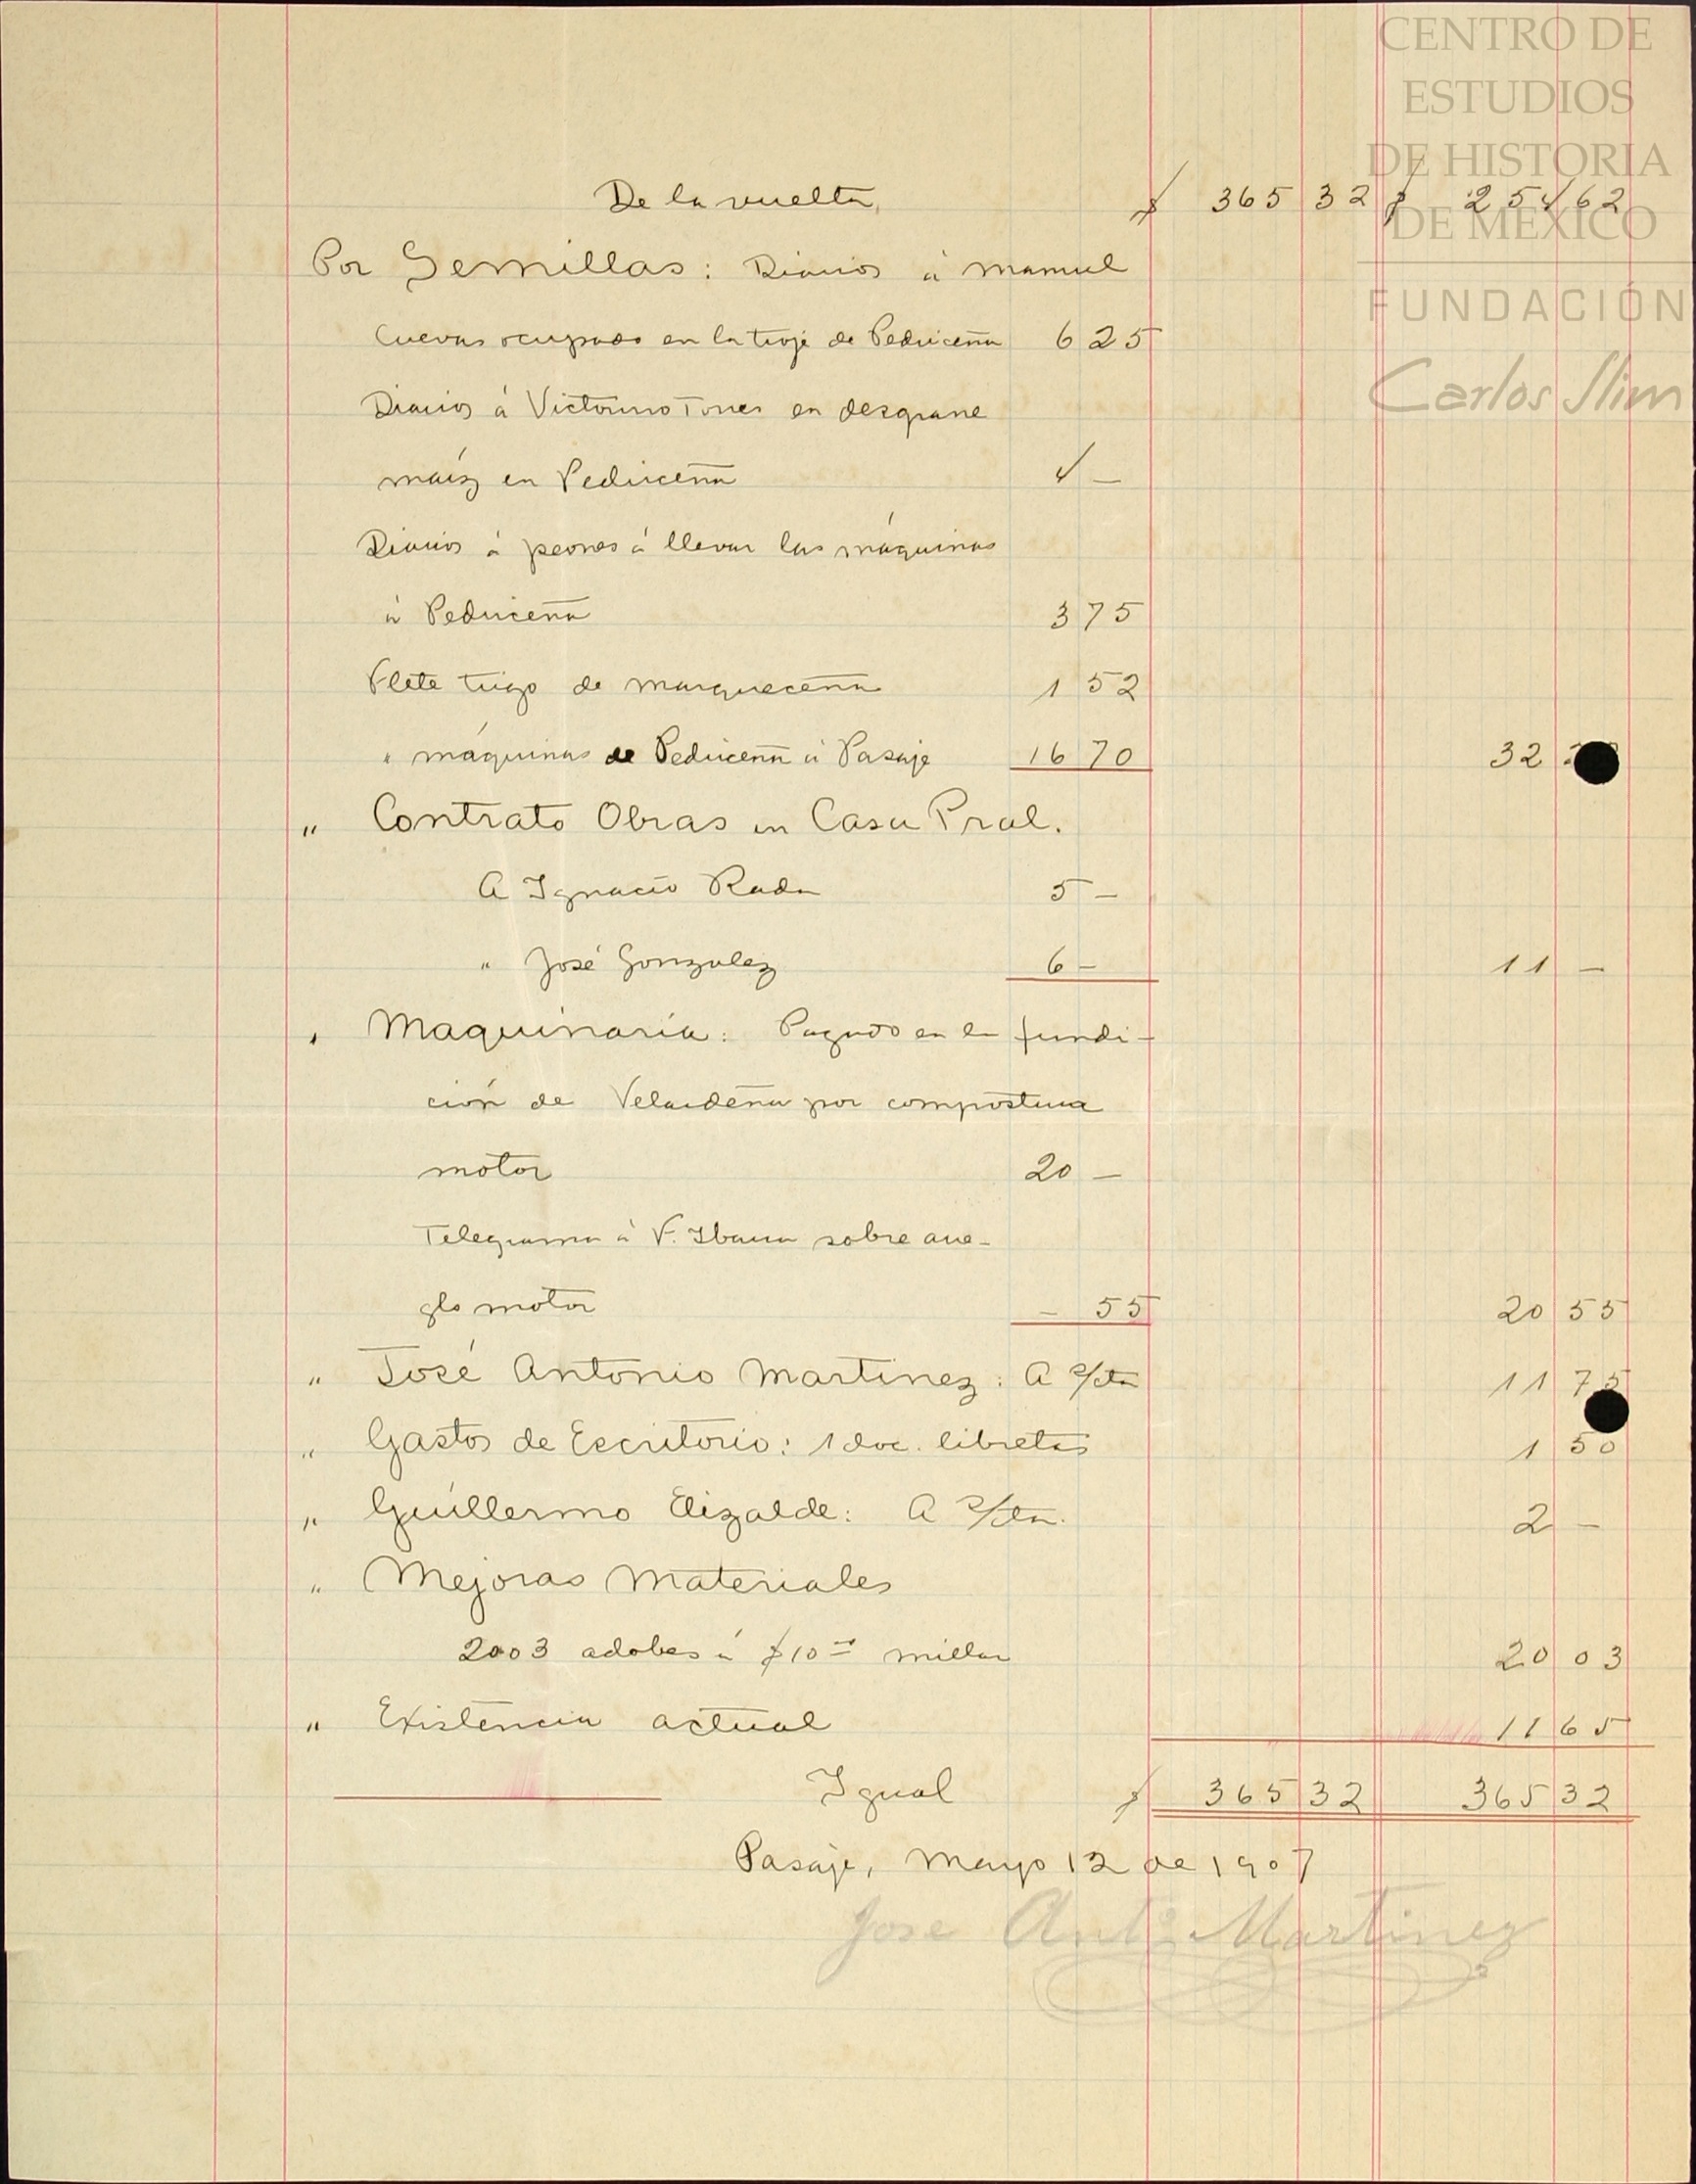 CENTRO DE
ESTUDIOS
DE HISTORIA
DE MÉXICO
FUNDACIÓN
Carlos Slim
De la vuelta, $ 365 32 $ 254 62
Por Semillas: Diarios á Manuel
Cuevas ocupado en la troje de Pedriceña 6 25
Diarios á Victorino Torres en desgrane
maíz en Pedriceña 4 —
Diarios á peones á llevar las máquinas
á Pedriceña 3 75
Flete trigo de Marqueceña 1 52
" máquinas de Pedriceña á Pasaje 16 70 32
" Contrato Obras en Casa Pral.
A Ignacio Rada 5 —
" José Gonzalez 6 — 11 —
" Maquinaria: Pagado en la fundi-
ción de Velardeña por compostura
motor 20 —
Telegrama á V. Ibarra sobre arre-
glo motor — 55 20 55
" José Antonio Martinez: A c/cta 11 75
" Gastos de Escritorio: 1 doc. libretas 1 50
" Guillermo Elizalde: A c/cta. 2 —
" Mejoras Materiales
2003 adobes á $10 = millar 20 03
" Existencia actual 11 65
Igual $ 365 32 365 32
Pasaje, Mayo 12 de 1907
Jose Anto Martinez